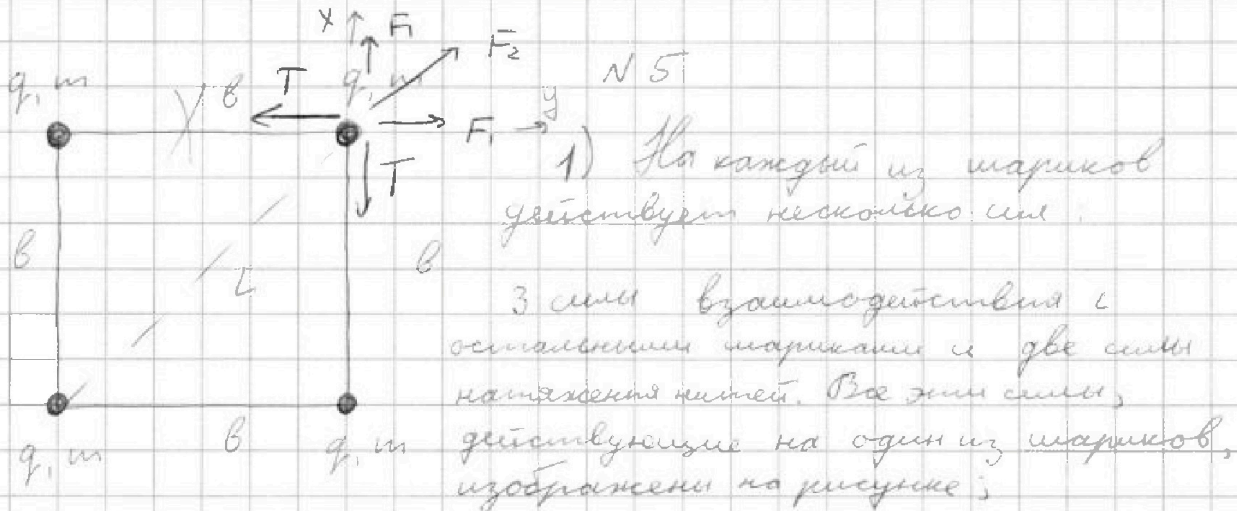 x F₁
F₂
N 5
q, m
в
T
q, m
y
F₁
1) На каждый из шариков
T
действует несколько сил.
в
L
в
3 силы взаимодействия с
остальными шариками и две силы
натяжения нитей. Все эти силы,
q, m
в
q, m
действующие на один из шариков,
изображены на рисунке;